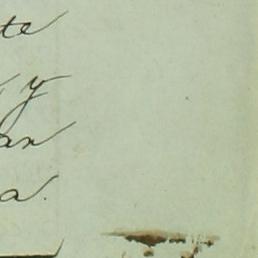 te
y
an
a.